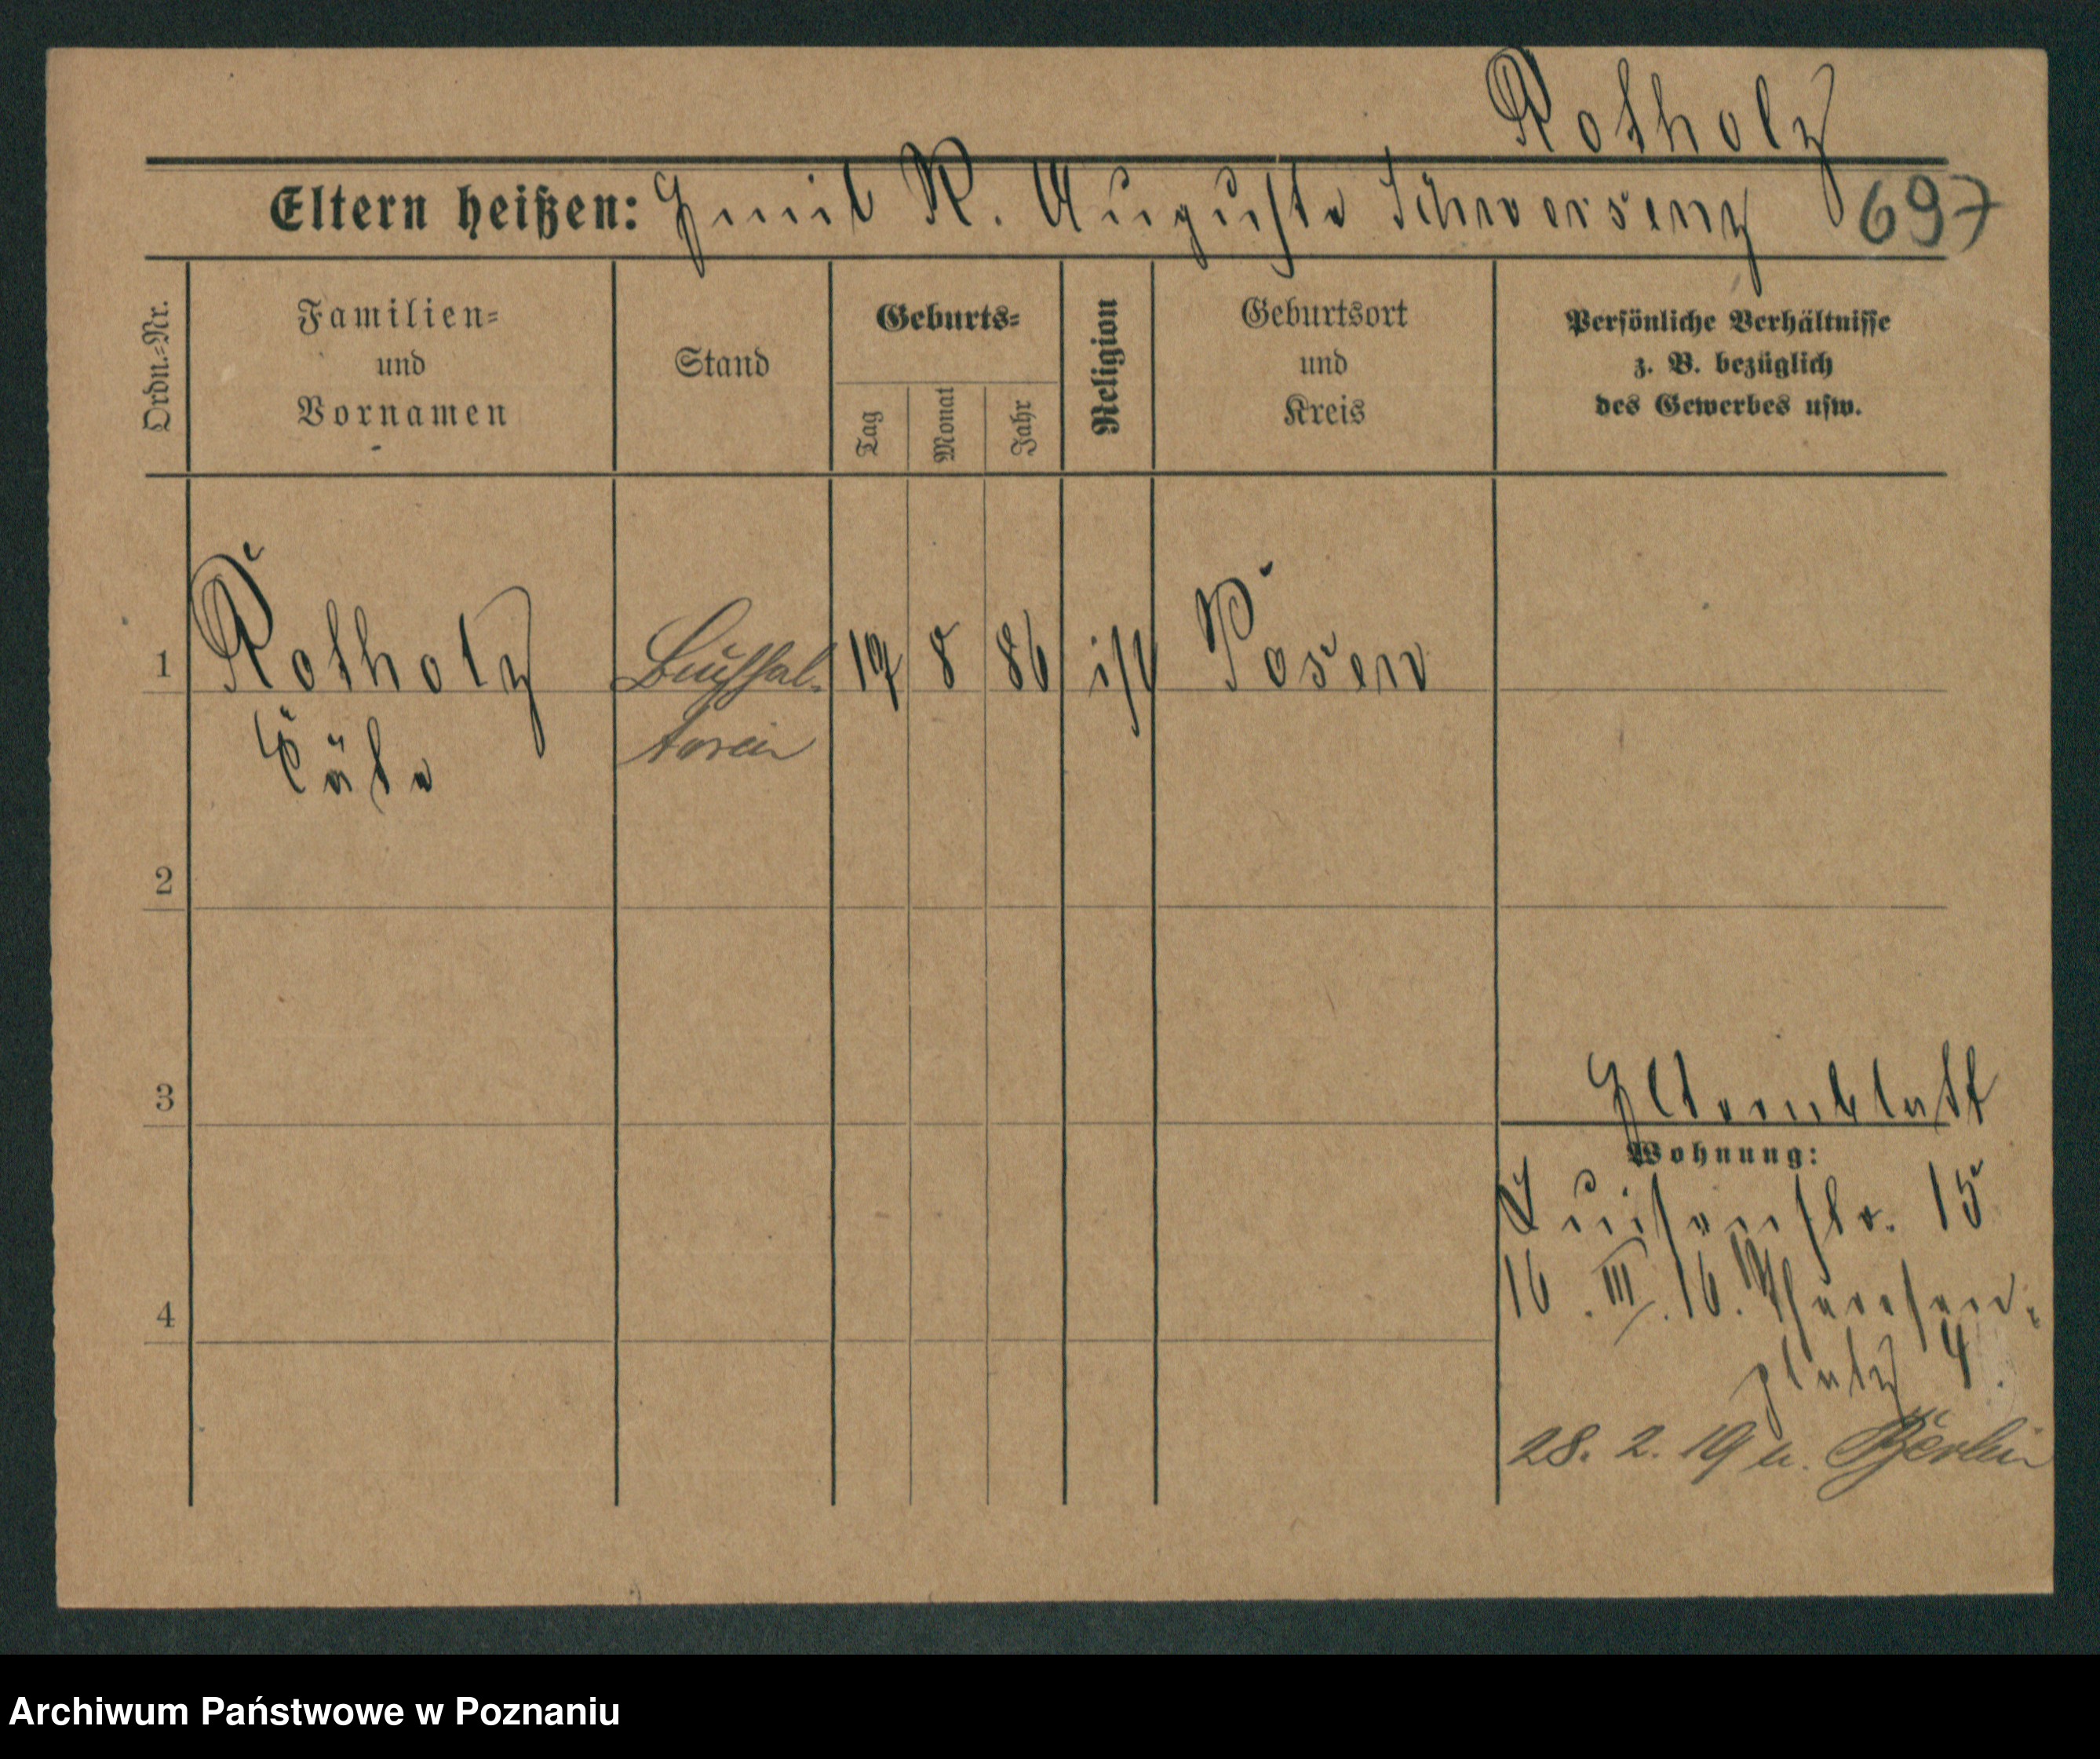 Rotholz
Eltern heißen: Emil R. Auguste Schwersenz 697
Ordn.-Nr. Familien- und Vornamen Stand Geburts- Tag Monat Jahr Religion Geburtsort und Kreis Persönliche Verhältnisse z. B. bezüglich des Gewerbes usw.
1 Rotholz Buchhal- 19 8 86 isr Posen
Käte terin
2
3
Elternblatt
Wohnung:
Luisenstr. 15
4
16. III. 16. Theresen-
platz 4.
28. 2. 19 n. Berlin
Archiwum Państwowe w Poznaniu